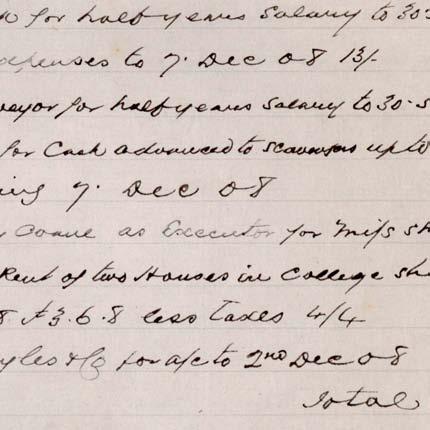 for half years Salary to 30
expenses to 7. Dec 08 13/-
veyor for half years Salary to 30. S
for Cash advanced to scavengers up to
ing 7. Dec 08
Coane as Executor for Miss Sh
Rent of two Houses in College Str
8 £3.6.8 less Taxes 4/4
yles & Co for a/c to 2nd Dec 08
Total